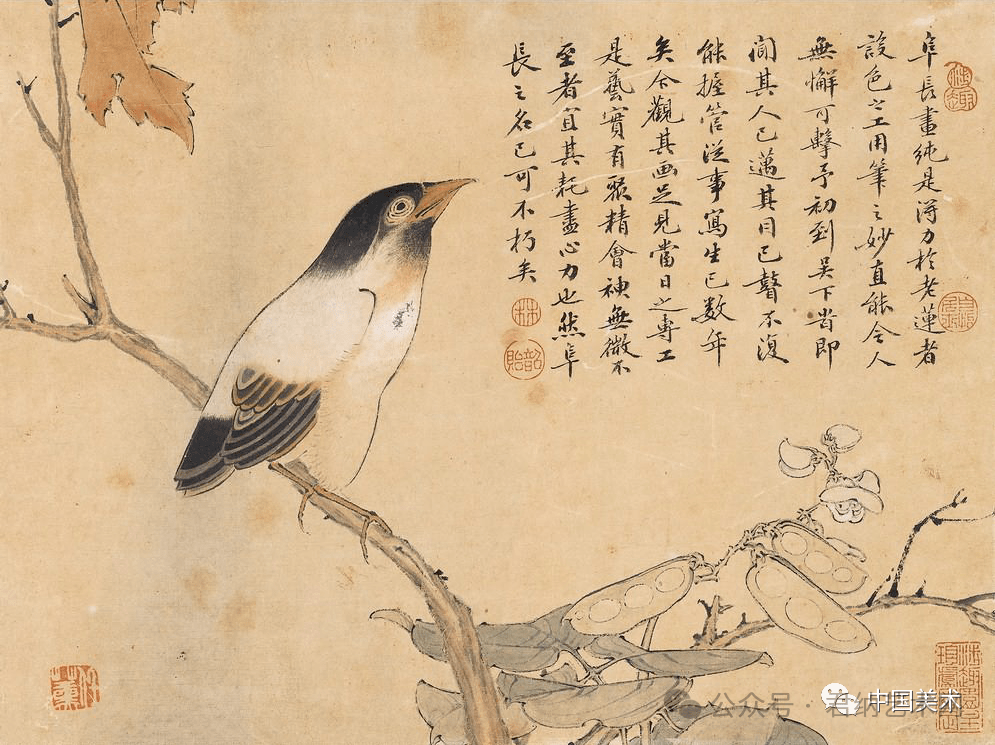 阜長畫純是得力於老蓮者
設色之工用筆之妙直能令人
無懈可擊予初到吳下旹即
聞其人已邁其目已瞽不復
能握管從事寫生已數年
矣今觀其画足見當日之專工
是藝實有聚精會神無微不
至者宜其耗盡心力也然阜
長之名已可不朽矣
任薰
公众号
中国美术